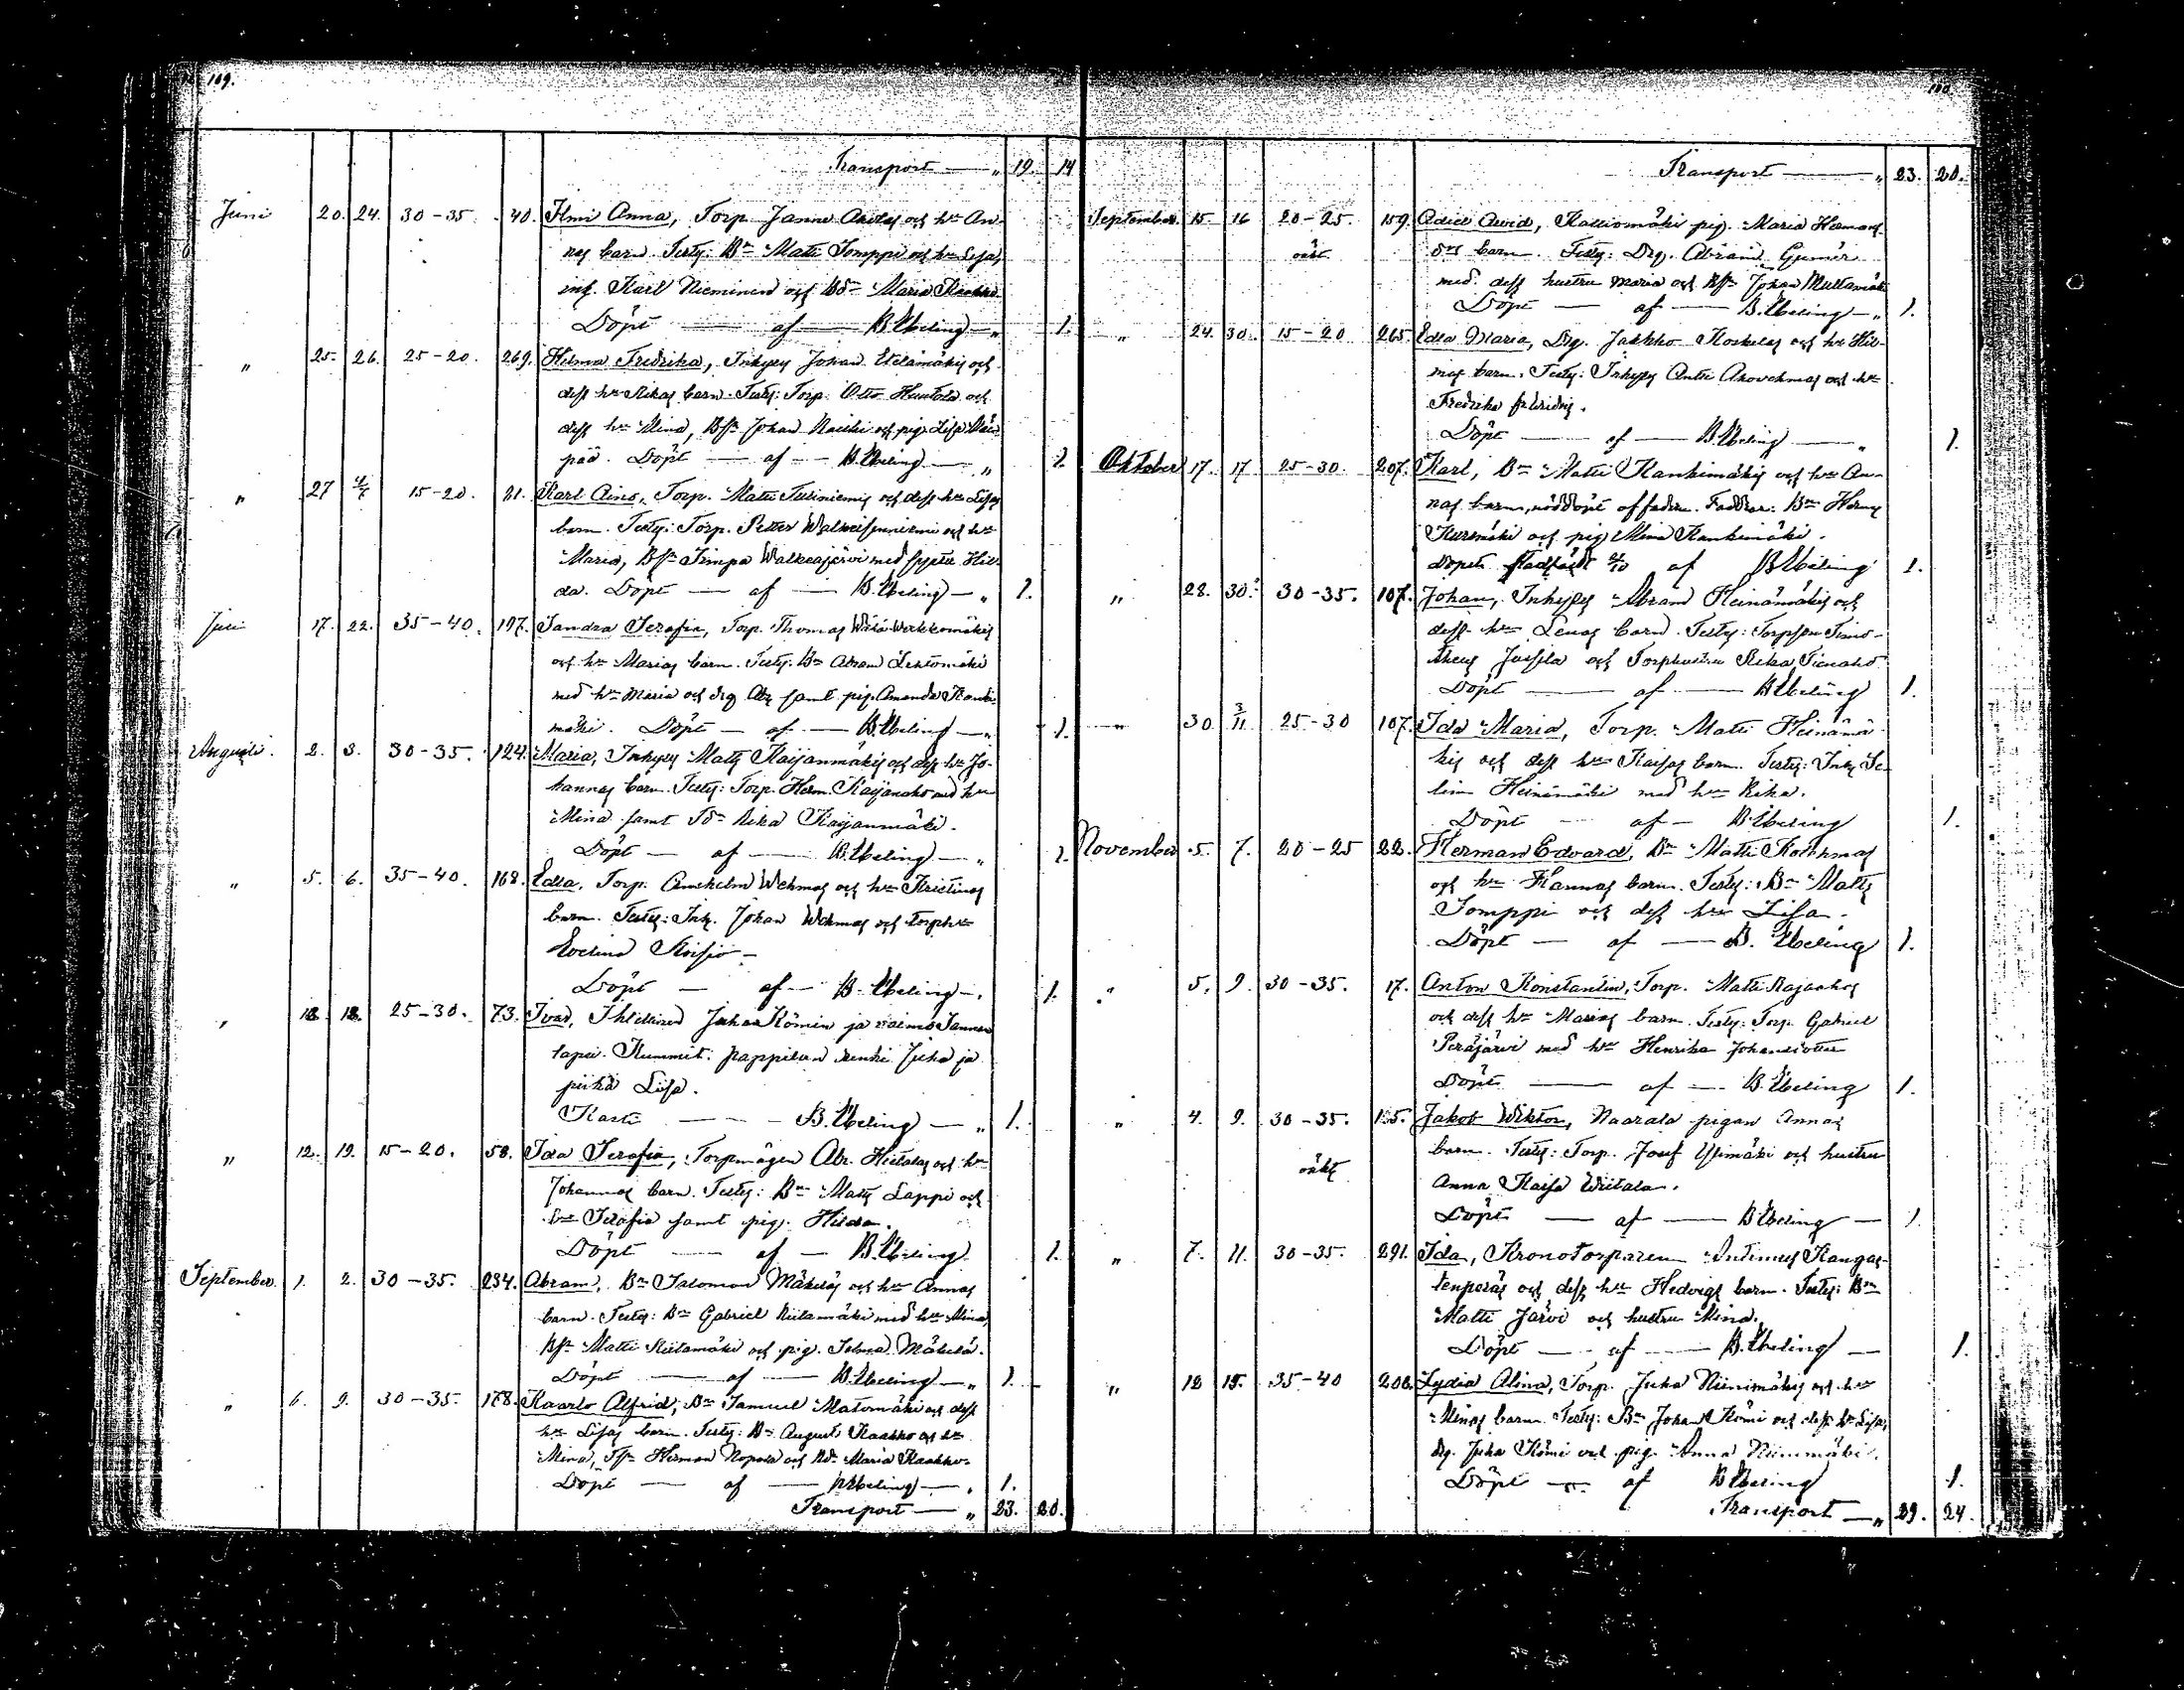 109.
Transport — „ 19. 14
Juni 20. 24. 30-35. 40. Hmi Anna, Torp. Janne och hru An-
nas barn. Testes: Bn Matts Tomppi och hru Lisa,
inh. Karl Nieminen och Maria
Döpt — af — B. Ebeling — „ 1.
„ 25. 26. 25-20. 269. Hilma Fredrika, Inhyses Johan Etelämäkis och
dess hru Rikas barn. Testes: Torp. Otto och
dess hru Mina, Johan och pig. Lisa
pää. Döpt — af — B. Ebeling — „ 1.
„ 27 4/7 15-20. 21. Karl Aino, Torp. Matts och dess hru Lisas
barn. Testes: Torp. Petter och hru
Maria, Walkeajärvi med syster Hil-
da. Döpt — af — B. Ebeling — „ 1.
Juli 17. 22. 35-40. 197. Sandra Serafia, Torp. Thomas
och hru Marias barn. Testes: Bn Abram Lehtomäki
med hru Maria och drg samt pig. Amanda
mäki. Döpt — af — B. Ebeling — „ 1.
Augusti. 2. 3. 30-35. 124. Maria, Inhyses Matts Kaijanmäkis och dess hru Jo-
hannas barn. Testes: Torp. Herm. Kaijanaho med hru
Mina samt Rika Kaijanmäki.
Döpt — af — B. Ebeling — „ 1.
„ 5. 6. 35-40. 168. Edla, Torp. Wehmas och hru Kristinas
barn. Testes: Inh. Johan Wehmas och torphru
Evelina
Döpt — af — B. Ebeling — 1.
„ 18. 18. 25-30. 73. Ivar, Juhan Kömin ja vaimo
lapsi. Kummit: pappilan renki Juha ja
piika Lisa.
Kasti — — B. Ebeling — „ 1.
„ 12. 19. 15-20. 58. Ida Serafia, Torpmågen Abr. Hietalas och hru
Johannas barn. Testes: Bn Matts Lappi och
hru Serafia samt pig. Hilda.
Döpt — af — B. Ebeling 1.
September. 1. 2. 30-35. 234. Abram, Bn Salomon Mäkeläs och hru Annas
barn. Testes: Bn Gabriel Riitamäki med hru Mina,
Matti Riitamäki och pig. Selma Mäkelä.
Döpt — af — B. Ebeling — „ 1.
„ 6. 9. 30-35. 178. Kaarlo Alfrid, Bn Samuel Matomäki och dess
hru Lisas barn. Testes: Bn August Kaakko och hru
Mina, Herman och Maria Kaakko.
Döpt — af — B. Ebeling — „ 1.
Transport — „ 23. 20.
110.
Transport — „ 23. 20.
September. 15. 16 20-25. 159. Adiel Arvid, Kalliomäki pig. Maria Hermans
oäkt drs barn. Testes: Drg. Abram
med dess hustru Maria och Johan Multamäki
Döpt — af — B. Ebeling — „ 1.
„ 24. 30. 15-20 265. Edla Maria, Drg. Jaakko Koskelas och hru Hil-
mas barn. Testes: Inhyses Antti och hru
Fredrika
Döpt — af — B. Ebeling — „ 1.
Oktober 17. 17. 25-30. 207. Karl, Bn Matts Kankimäkis och hru An-
nas barn, nöddöpt af fadren. Faddrar: Bn Herm.
och pig. Mina Kankimäki.
Dopet af B. Ebeling 1.
„ 28. 30. 30-35. 107. Johan, Inhyses Abram Heinämäkis och
dess hru Lenas barn. Testes: Torpson Timo-
theus Jussila och Torphustru Rika Tienaho
Döpt — af — B. Ebeling 1.
„ 30. 3/11 25-30 107. Ida Maria, Torp. Matts Heinämä-
kis och dess hru Kaisas barn. Testes: Inh. Se-
lim Heinämäki med hru Rika.
Döpt — af — B. Ebeling 1.
November 5. 7. 20-25 22. Herman Edvard, Bn Matts
och hru Hannas barn. Testes: Bn Matts
Tomppi och dess hru Lisa.
Döpt — af — B. Ebeling 1.
„ 5. 9. 30-35. 17. Anton Konstantin, Torp. Matti Rajaahos
och dess hru Marias barn. Testes: Torp. Gabriel
Peräjärvi med hru Henrika Johansdotter
Döpt — af — B. Ebeling 1.
„ 4. 9. 30-35. 155. Jakob Wiktor, Naarala pigan Annas
oäkta barn. Testes: Torp. Josef Ylimäki och hustru
Anna Kaisa Wiitala.
Döpt — af — B. Ebeling — 1.
„ 7. 11. 30-35. 291. Ida, Kronotorparen Kangas-
tenperäs och dess hru Hedvigs barn. Testes: Bn
Matti Järvi och hustru Mina.
Döpt — af — B. Ebeling — 1.
„ 12 15. 35-40 208. Lydia Alina, Torp. Juha Niinimäkis och hru
Minas barn. Testes: Bn Johan Kömi och dess hru Lisa,
drg. Juha Kömi och pig. Anna Niinimäki.
Döpt — af B. Ebeling 1.
Transport — „ 29. 24.